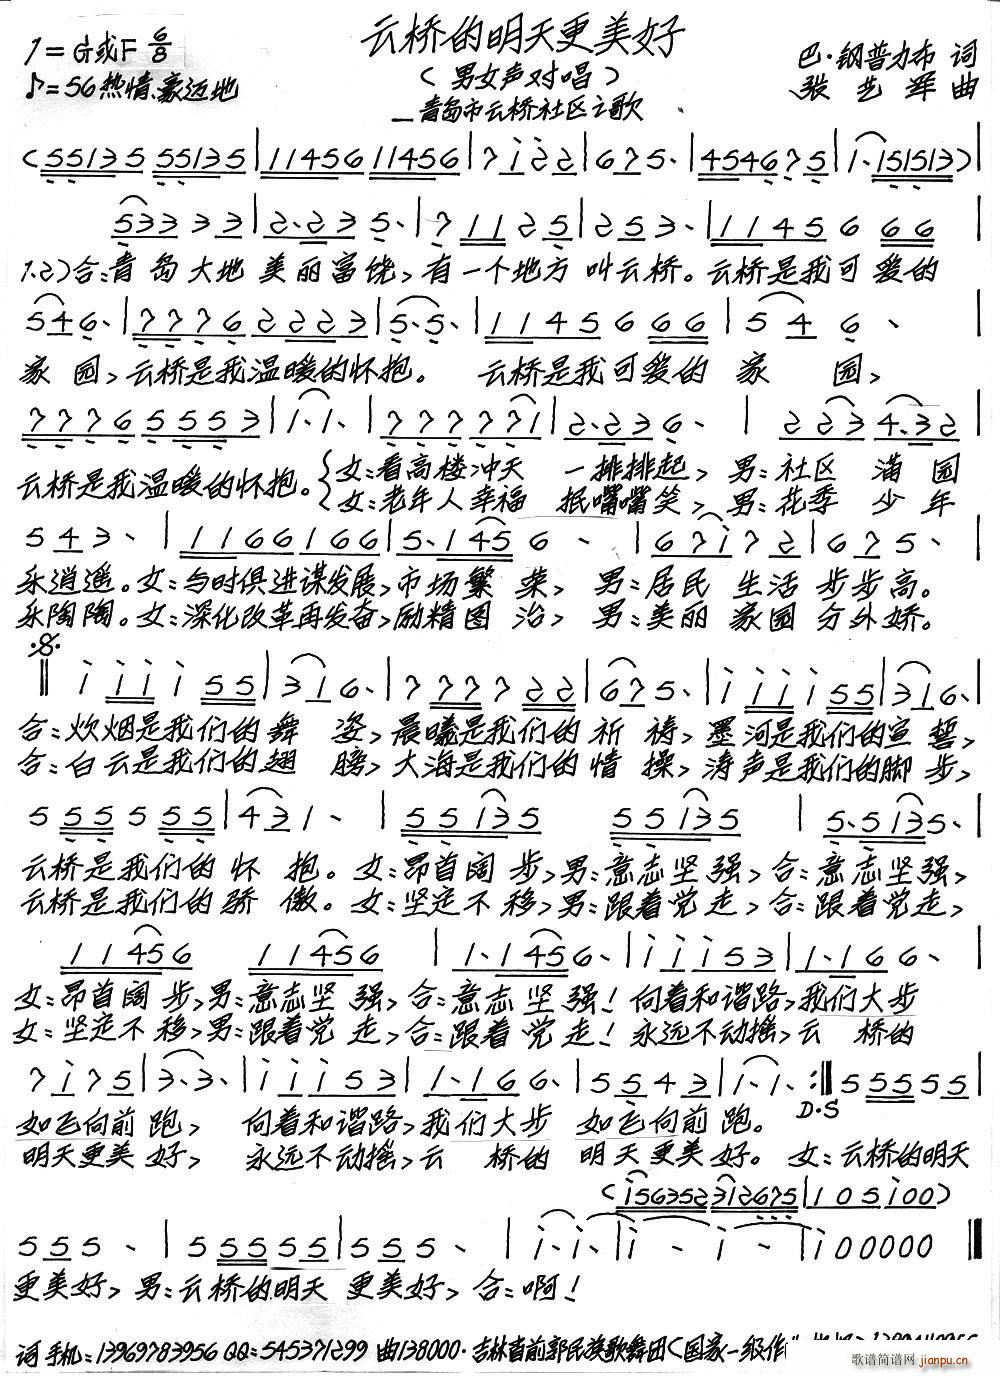 云桥的明天更美好
1=G或F 6/8
(男女声对唱)
巴·钢普力布 词
♪=56 热情、豪迈地
张艺军 曲
—青岛市云桥社区之歌
(55135 55135|11456 11456|7 i 2 2|6 7 5.|4546 7 5|1. 151513)|
533 3 3|2.2 3 5.|7 11 2 5|2 5 3.|11 4 5 6 66|
1.2)合:青岛大地 美丽富饶,有一个地方 叫云桥。云桥是我可爱的
5 4 6.|7776 2223|5. 5.|11 4 5 6 66|5 4 6.|
家园,云桥是我温暖的怀抱。 云桥是我可爱的 家 园,
7776 5553|1. 1.|77 77 71|2.2 3 6.|2 23 4.32|
云桥是我温暖的怀抱。{女:看高楼冲天 一排排起,男:社区 满园
女:老年人幸福 抿嘴嘴笑,男:花季 少年
5 4 3.|1166 166|5. 145 6.|6 7i 7 2|6 7 5.|
乐逍遥。女:与时俱进谋发展,市场繁 荣, 男:居民 生活 步步高。
乐陶陶。女:深化改革再发奋,励精图 治, 男:美丽 家园 分外娇。
i iii i 55|3 1 6.|7 777 7 22|6 7 5.|i iii i 55|3 1 6.|
合:炊烟是我们的舞 姿,晨曦是我们的祈 祷,墨河是我们的宣 誓,
合:白云是我们的翅 膀,大海是我们的情 操,涛声是我们的脚 步,
5 555 5 55|4 3 1.|55135 55135|5. 5135.|
云桥是我们的 怀 抱。女:昂首阔 步,男:意志坚 强,合:意志坚强,
云桥是我们的 骄 傲。女:坚定不 移,男:跟着党 走,合:跟着党走,
11456 11456|1. 1456.|i i i 5 3|1. 1 6 6.|
女:昂首阔 步,男:意志坚 强,合:意志 坚 强!向着和谐路,我们大步
女:坚定不 移,男:跟着党 走,合:跟着 党 走!永远不动摇,云 桥的
7 i 7 5|3. 3.|i i i 5 3|1. 1 6 6.|5 5 4 3|1. 1. :‖5 5555 5|
D.S
如飞向前 跑, 向着和谐路,我们大步 如飞向前 跑。
明天更美 好, 永远不动摇,云 桥的 明天更美好。 女:云桥的明天
(i56352 312675|1 0 5 i00)
5 5 5 .|5 555 55|5 5 5 .|i. i.|i - i -|i 00000‖
更美好,男:云桥的明天 更美好,合:啊!
词手机:13969783956 QQ:545371299 曲138000·吉林省前郭民族歌舞团(国家一级作
歌谱简谱网
jianpu.cn